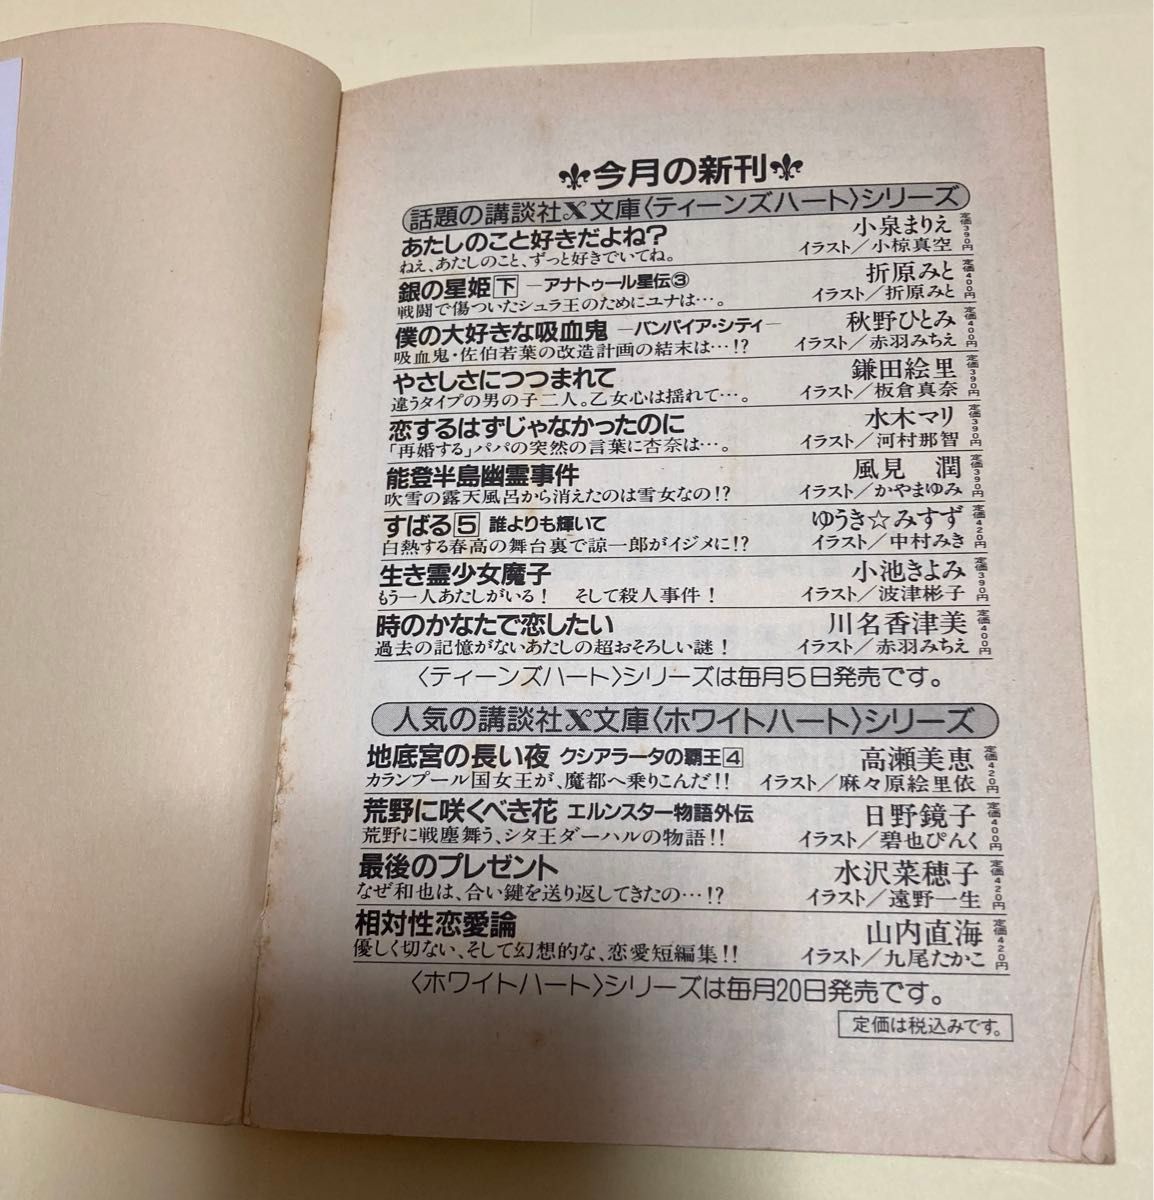 今月の新刊
話題の講談社X文庫〈ティーンズハート〉シリーズ
あたしのこと好きだよね? 小泉まりえ 定価390円
ねえ、あたしのこと、ずっと好きでいてね。 イラスト／小椋真空
銀の星姫下 ―アナトゥール星伝③ 折原みと 定価400円
戦闘で傷ついたシュラ王のためにユナは…。 イラスト／折原みと
僕の大好きな吸血鬼 ―バンパイア・シティ― 秋野ひとみ 定価400円
吸血鬼・佐伯若葉の改造計画の結末は…!? イラスト／赤羽みちえ
やさしさにつつまれて 鎌田絵里 定価390円
違うタイプの男の子二人。乙女心は揺れて…。 イラスト／板倉真奈
恋するはずじゃなかったのに 水木マリ 定価390円
「再婚する」パパの突然の言葉に杏奈は…。 イラスト／河村那智
能登半島幽霊事件 風見 潤 定価390円
吹雪の露天風呂から消えたのは雪女なの!? イラスト／かやまゆみ
すばる5 誰よりも輝いて ゆうき☆みすず 定価420円
白熱する春高の舞台裏で諒一郎がイジメに!? イラスト／中村みき
生き霊少女魔子 小池きよみ 定価390円
もう一人あたしがいる! そして殺人事件! イラスト／波津彬子
時のかなたで恋したい 川名香津美 定価400円
過去の記憶がないあたしの超おそろしい謎! イラスト／赤羽みちえ
〈ティーンズハート〉シリーズは毎月5日発売です。
人気の講談社X文庫〈ホワイトハート〉シリーズ
地底宮の長い夜 クシアラータの覇王4 高瀬美恵 定価420円
カランプール国女王が、魔都へ乗りこんだ!! イラスト／麻々原絵里依
荒野に咲くべき花 エルンスター物語外伝 日野鏡子 定価400円
荒野に戦塵舞う、シタ王ダーハルの物語!! イラスト／碧也ぴんく
最後のプレゼント 水沢菜穂子 定価420円
なぜ和也は、合い鍵を送り返してきたの…!? イラスト／遠野一生
相対性恋愛論 山内直海 定価420円
優しく切ない、そして幻想的な、恋愛短編集!! イラスト／九尾たかこ
〈ホワイトハート〉シリーズは毎月20日発売です。
定価は税込みです。